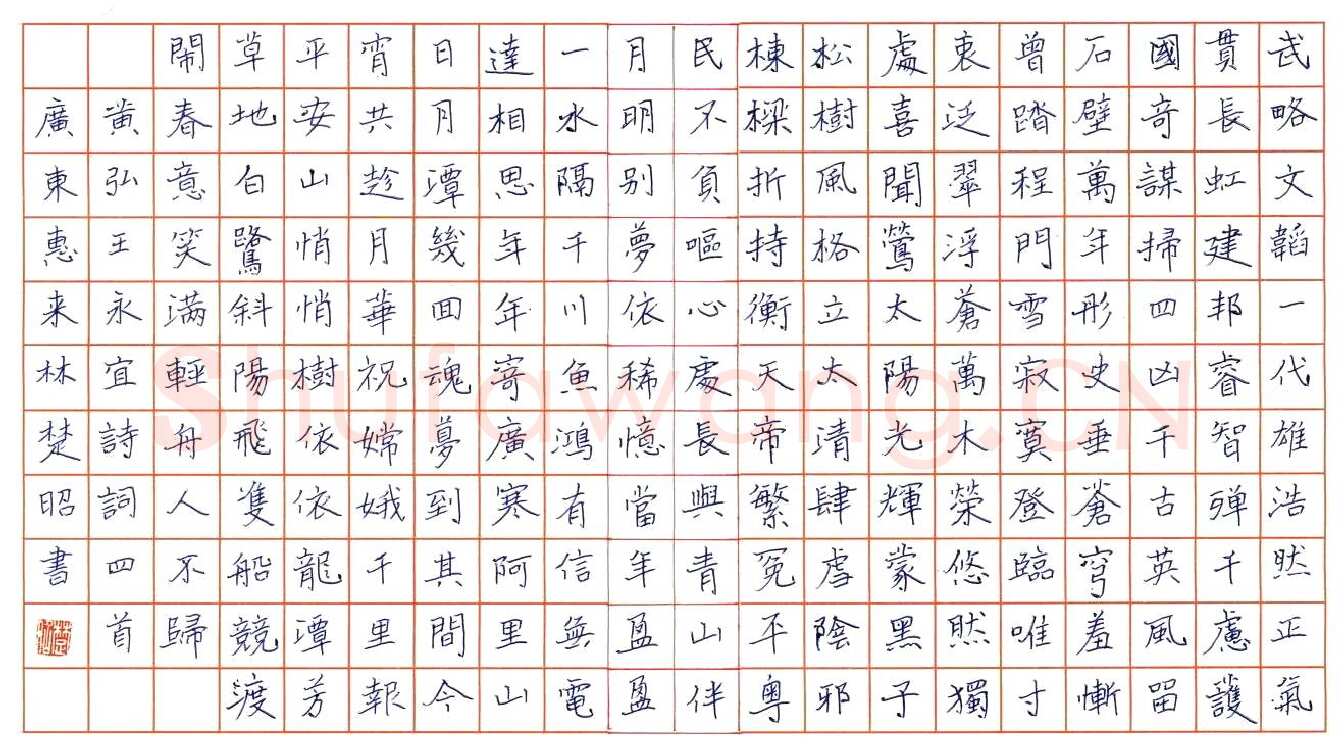 武略文韜一代雄浩然正氣
貫長虹建邦睿智殫千慮護
國奇謀掃四凶千古英風留
石壁萬年彤史垂蒼穹羞慚
曾踏程門雪寂寞登臨唯寸
衷泛翠浮蒼萬木榮悠然獨
處喜聞鶯太陽光輝蒙黑子
松樹風格立太清肆虐陰邪
棟樑折持衡天帝繁冤平粵
民不負嘔心處長與青山伴
月明别夢依稀憶當年盈盈
一水隔千川魚鴻有信無電
達相思年年寄廣寒阿里山
日月潭幾回魂夢到其間今
宵共趁月華祝嫦娥千里報
平安山悄悄樹依依龍潭芳
草地白鷺斜陽飛隻船競渡
鬧春意笑满輕舟人不歸
黄弘王永宜詩詞四首
廣東惠来林楚昭書
Shufawang.CN